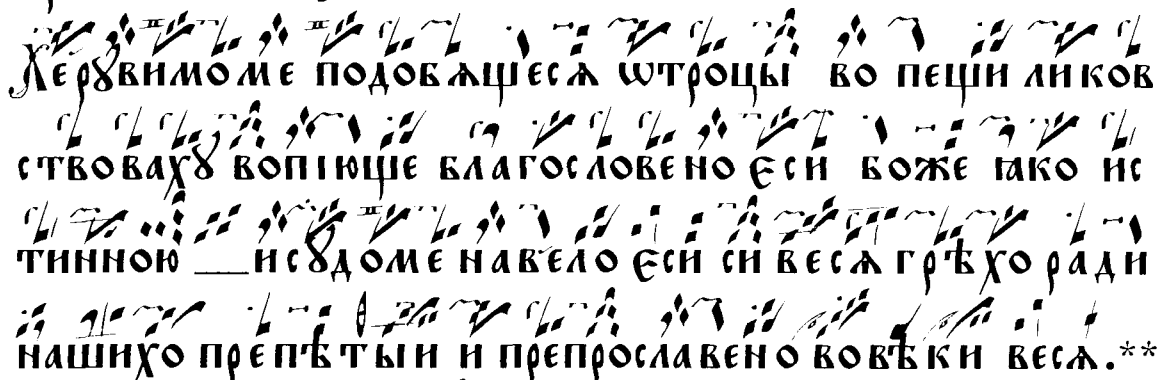 Херꙋвимоме подобѧщесѧ ѿтроцы во пещи ликов
ствовахꙋ вопіюще благословено єси боже ꙗко ис
тинною и сꙋдоме навело єси си весѧ грѣхо ради
нашихо препѣтыи и препрославено вовѣки весѧ.**